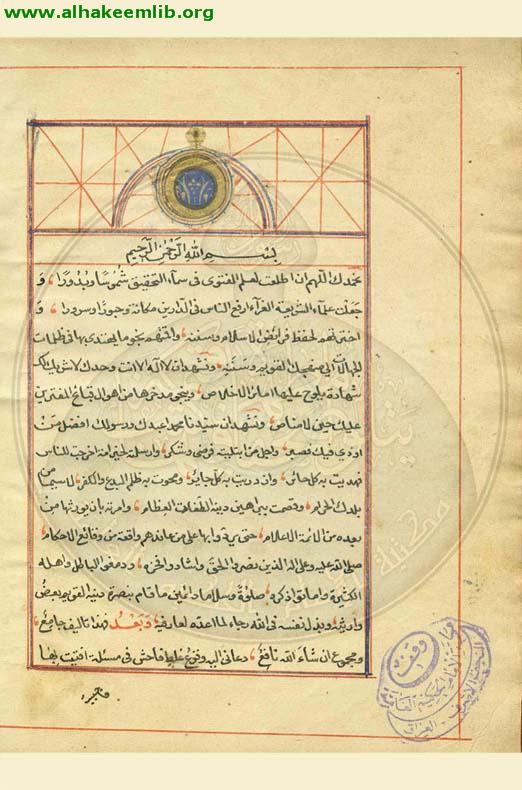 www.alhakeemlib.org
بسم الله الرحمن الرحيم
نحمدك اللهم ان اطلعت لعلم الفتوى في سماء التحقيق شموسا وبدورا، و
جعلت علماء الشريعة الغراء ارفع الناس في الدارين مكانة وحبورا وسرورا، و
اخترتهم لحفظ فرائض الاسلام وسننه، واقمتهم نجوما يهتدى بها في ظلمات
الجهالات الى منهجك القويم وسننه، ونشهد ان لا اله الا انت وحدك لا شريك لك
شهادة يلوح عليها امائر الاخلاص، وينجى مدخرها من هول اتباع المفترين
عليك حين لا مناص، ونشهد ان سيدنا محمدا عبدك ورسولك افضل من
اوذى فيك فصبر، واجل من ابتليته فرضى وشكر، وارسلته لخير امة اخرجت للناس
فهديت به كل حائر، وازددت به كل جابر، ومحوت به ظلم البدع والكفر لا سيما من
بلدك الحرام، وقصمت ببراهين دينه الطغاة العظام، وامرته بان يورثها من
بعده من الائمة الاعلام، حتى يردوا بها على من عاندهم واقتة من وقائع الاحكام،
صلى الله عليه وعلى اله الذين نصروا الحق وشادوا وحزبه، ودمغوا الباطل واهله
الكثيرة واماتوا ذكره، صلوة وسلاما دائمين ما قام بنصرة دينه القويم بعض
وارثيه، وبذل نفسه في الله رجاء لما اعده لعارفيه، وبعد فهذا تاليف جامع،
ومجموع ان شاء الله نافع، دعاني اليه وقوع غلط فاحش في مسئلة افتيت بها
وقف